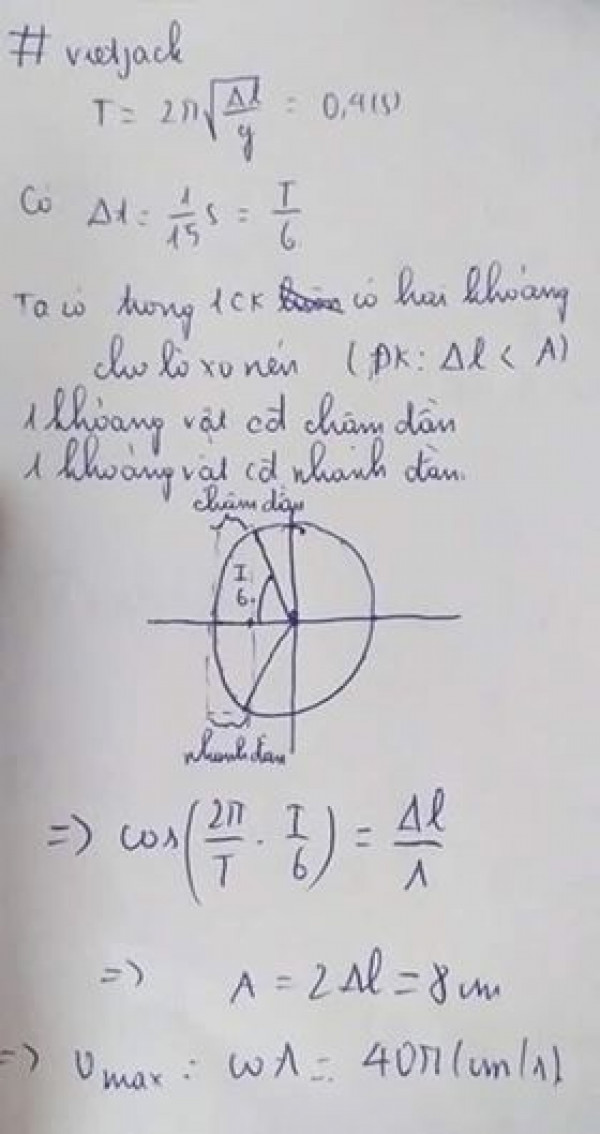 # vietjack
T = 2π√(Δl/g) = 0,4(s)
Có Δt = 1/15 s = T/6
Ta có trong 1CK có hai khoảng
cho lò xo nén (ĐK: Δl < A)
1 khoảng vật cđ chậm dần
1 khoảng vật cđ nhanh dần.
chậm dần
T/6
nhanh dần
=> cos(2π/T . T/6) = Δl/A
=> A = 2Δl = 8cm
=> vmax = ωA = 40π(cm/s)